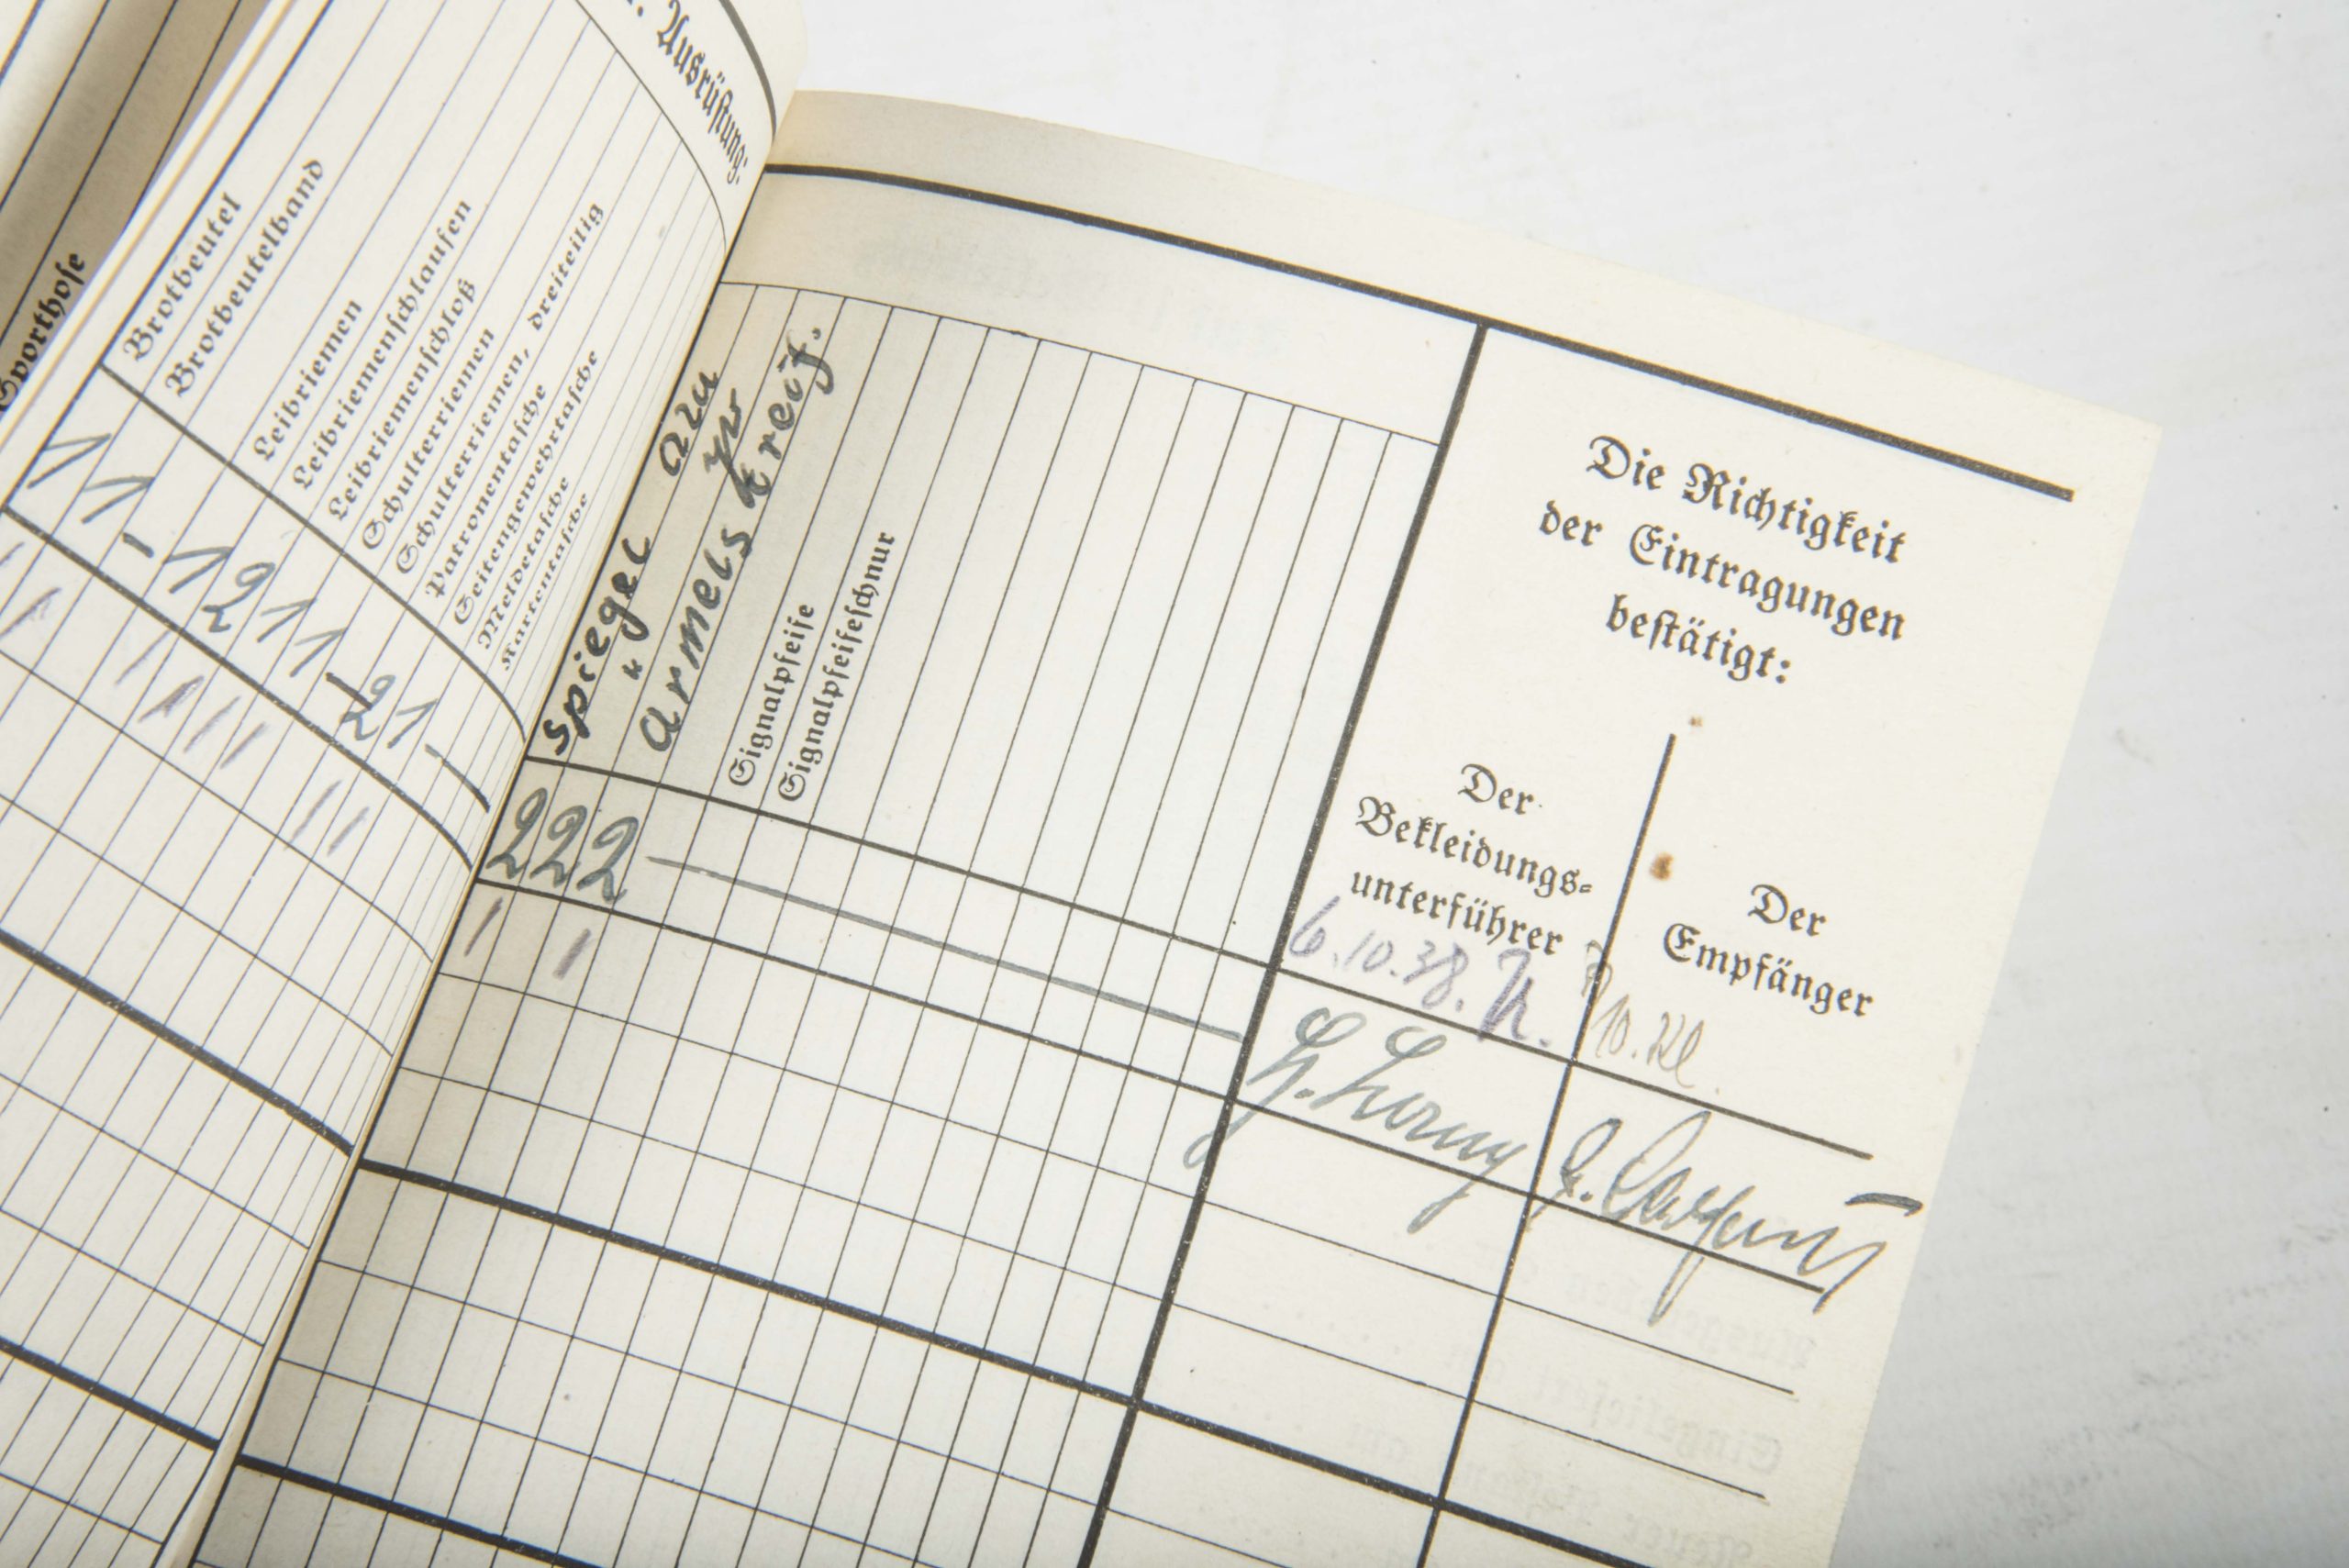 Sporthose
Ausrüstung:
Brotbeutel
Brotbeutelband
Leibriemen
Leibriemenschlaufen
Leibriemenschloß
Schulterriemen
Schulterriemen, dreiteilig
Patronentasche
Seitengewehrtasche
Meldetasche
Kartentasche
1 1 - 1 2 1 1 - 2 1 -
Spiegel
"
Armels
Signalpfeife
Signalpfeifeschnur
2 2 2 —
Die Richtigkeit
der Eintragungen
bestätigt:
Der
Bekleidungs-
unterführer
Der
Empfänger
6.10.38.